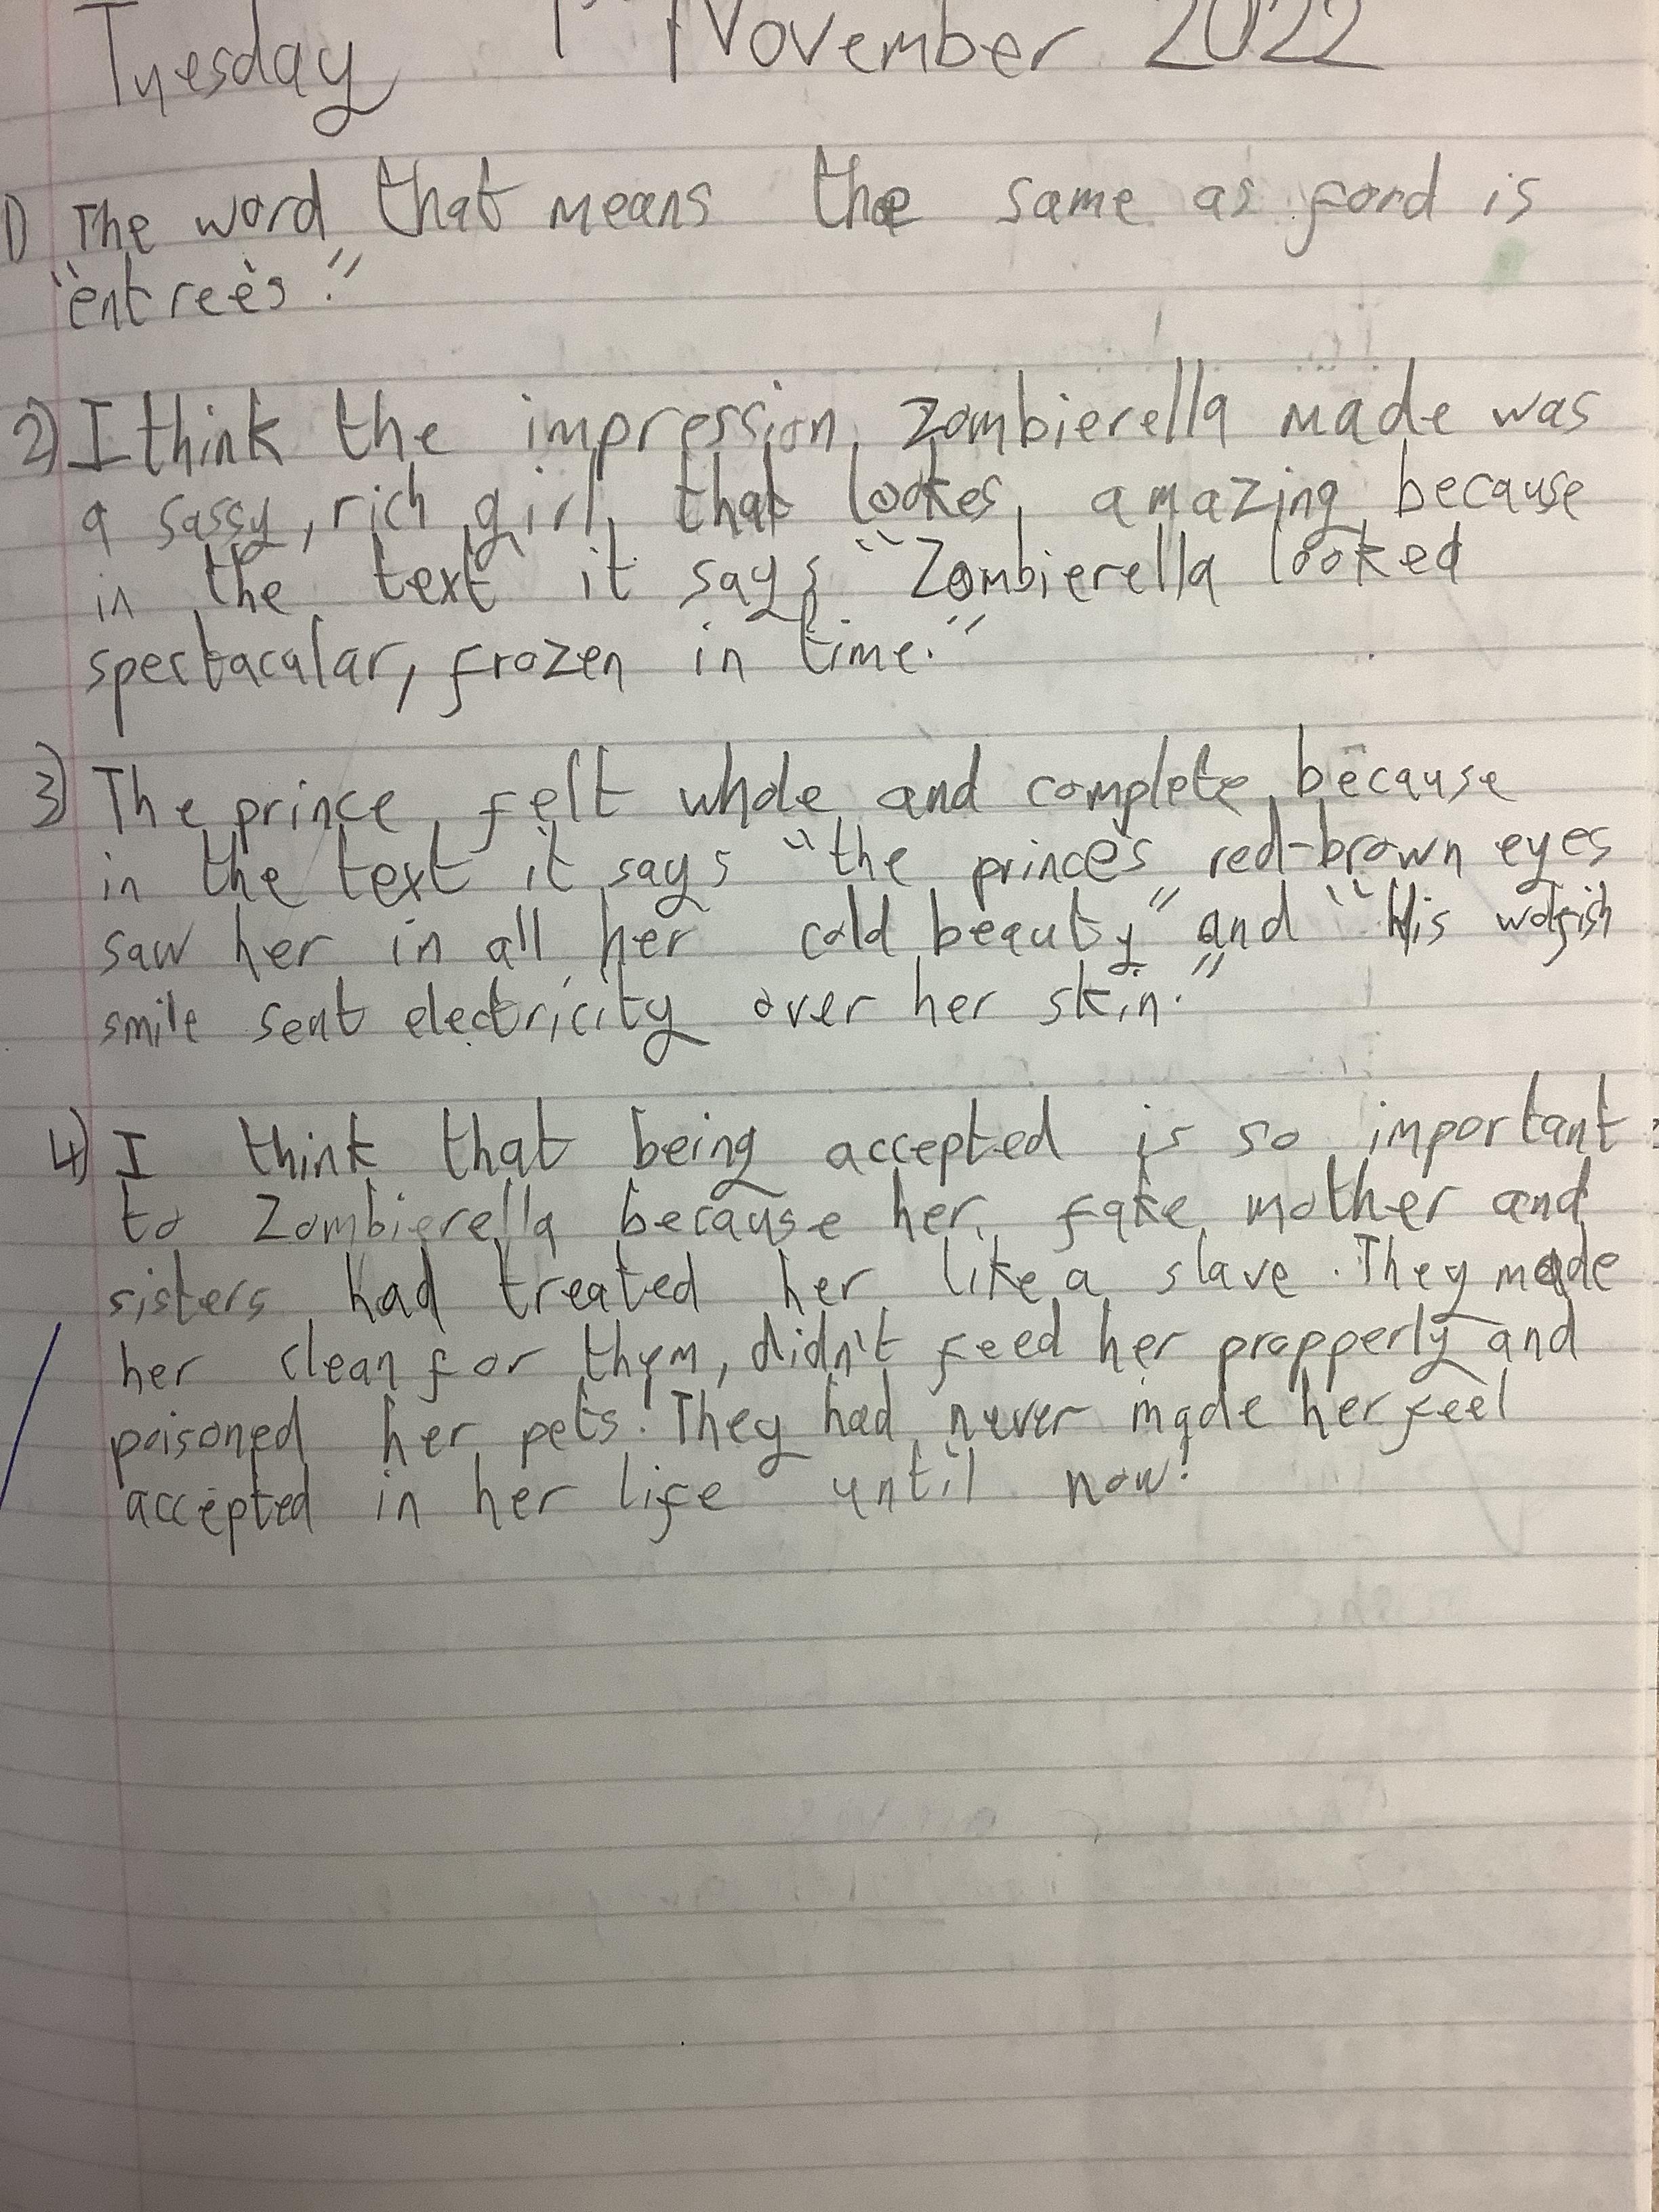 Tuesday 1st November 2022
1) The word that means the same as food is
"entreés."
2) I think the impression Zombierella made was
a sassy, rich girl that lookes amazing because
in the text it says "Zombierella looked
spectacular, frozen in time."
3) The prince felt whole and complete because
in the text it says "the prince's red-brown eyes
saw her in all her cold beauty" and "His wolfish
smile sent electricity over her skin."
4) I think that being accepted is so important
to Zombierella because her fake mother and
sisters had treated her like a slave. They made
her clean for them, didn't feed her propperly and
poisoned her pets! They had never made her feel
accepted in her life until now!